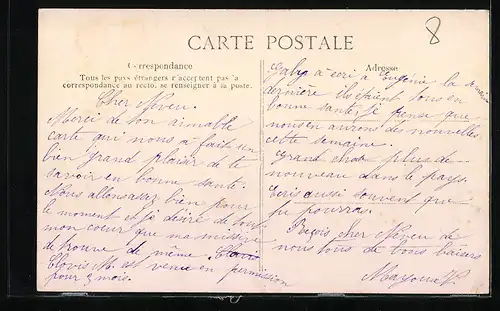 8
CARTE POSTALE
Correspondance
Tous les pays étrangers n'acceptent pas la
correspondance au recto, se renseigner à la poste.
Cher Neveu.
Merci de ton aimable
carte qui nous a faits un
bien grand plaisir de te
savoir en bonne santé.
Nous allons assez bien pour
le moment et je désire de tout
mon coeur que ma missive
te trouve de même.
Clovis M. est venu en permission
pour 3 mois.
Adresse
Gaby a écri a Eugénie la
dernière ils étaint tous en
bonne santer je pense que
nous en aurons des nouvelles
cette semaine.
Grand chose plus de
nouveau dans le pays.
Ecris aussi souvent que
tu pourras.
Reçois cher Neveu de
nous tous de bons baisers